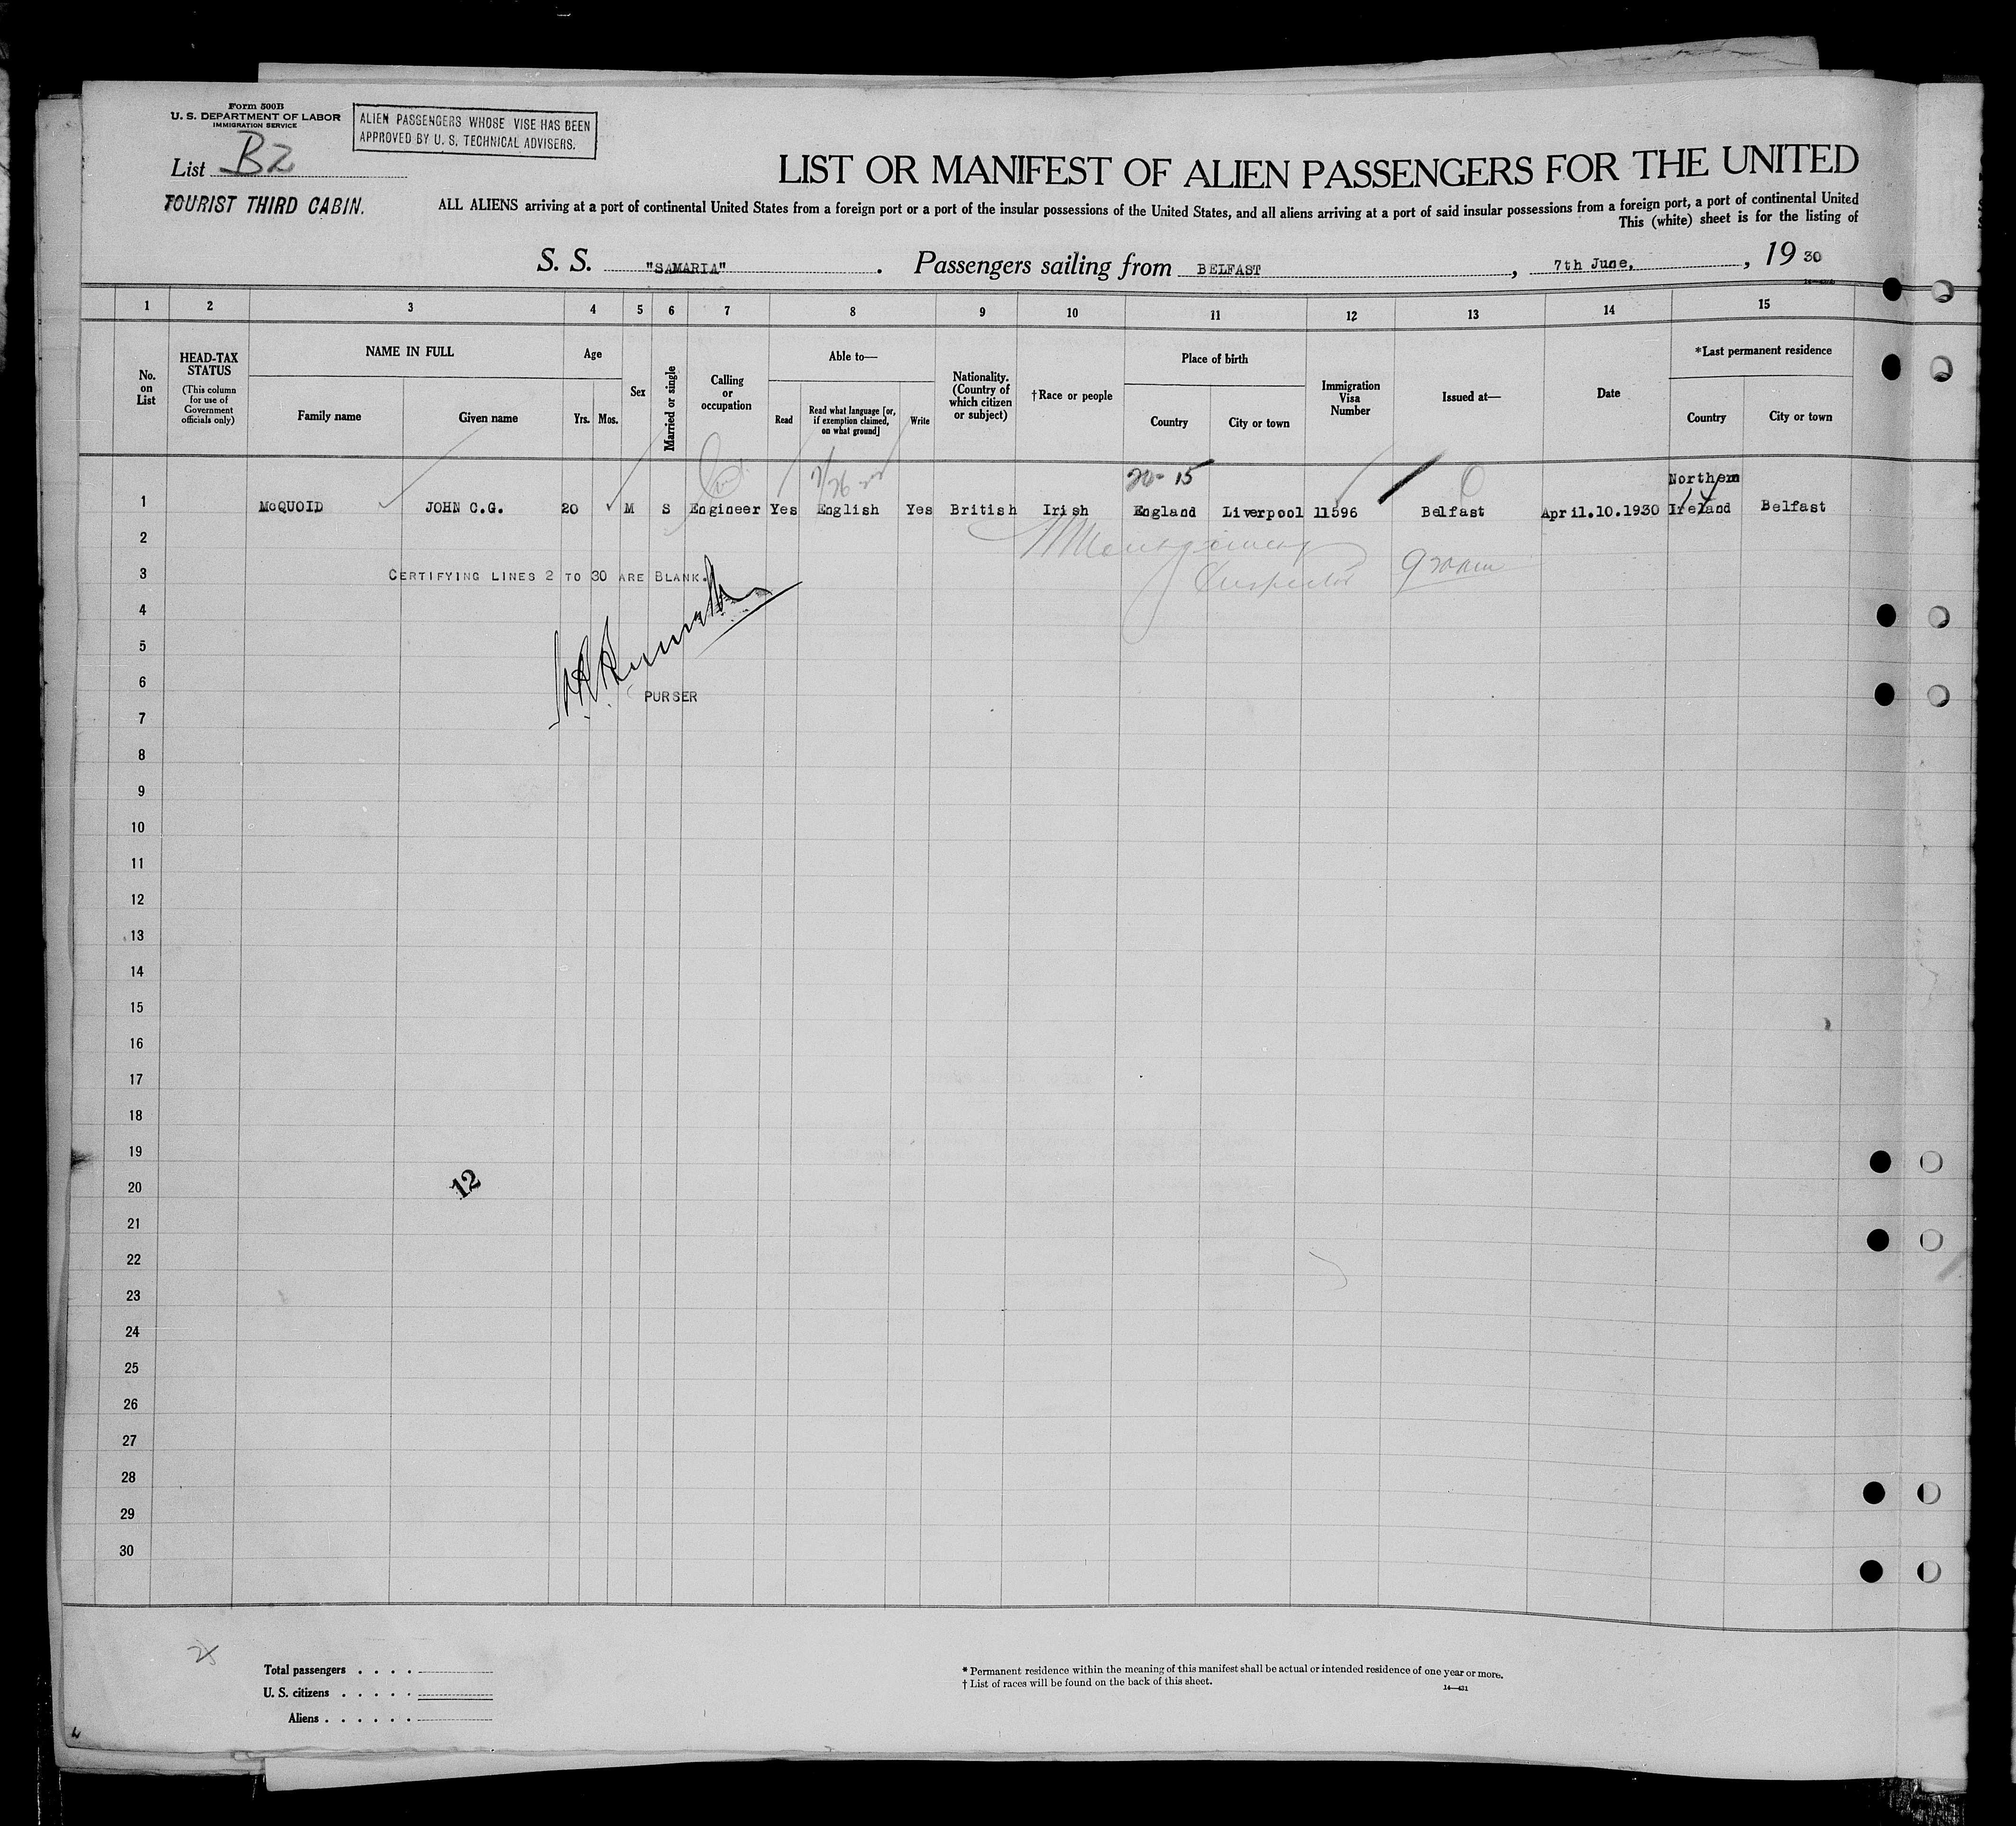 Form 500B
U. S. DEPARTMENT OF LABOR
IMMIGRATION SERVICE
ALIEN PASSENGERS WHOSE VISE HAS BEEN
APPROVED BY U. S. TECHNICAL ADVISERS.
List B2
TOURIST THIRD CABIN.
LIST OR MANIFEST OF ALIEN PASSENGERS FOR THE UNITED
ALL ALIENS arriving at a port of continental United States from a foreign port or a port of the insular possessions of the United States, and all aliens arriving at a port of said insular possessions from a foreign port, a port of continental United
This (white) sheet is for the listing of
S. S. "SAMARIA" . Passengers sailing from BELFAST , 7th June, , 19 30
1 2 3 4 5 6 7 8 9 10 11 12 13 14 15
No. on List
HEAD-TAX STATUS
(This column for use of Government officials only)
NAME IN FULL
Family name
Given name
Age
Yrs.
Mos.
Sex
Married or single
Calling or occupation
Able to—
Read
Read what language [or, if exemption claimed, on what ground]
Write
Nationality. (Country of which citizen or subject)
†Race or people
Place of birth
Country
City or town
Immigration Visa Number
Issued at—
Date
*Last permanent residence
Country
City or town
20-15
1 McQUOID JOHN C.G. 20 M S Engineer Yes English Yes British Irish England Liverpool 11596 Belfast April.10.1930 Northern Ireland Belfast
2
Inspector
3 CERTIFYING LINES 2 TO 30 ARE BLANK.
4
5
6
PURSER
7
8
9
10
11
12
13
14
15
16
17
18
19
12
20
21
22
23
24
25
26
27
28
29
30
Total passengers . . . .
U. S. citizens . . . . .
Aliens . . . . . .
* Permanent residence within the meaning of this manifest shall be actual or intended residence of one year or more.
† List of races will be found on the back of this sheet.
14—421